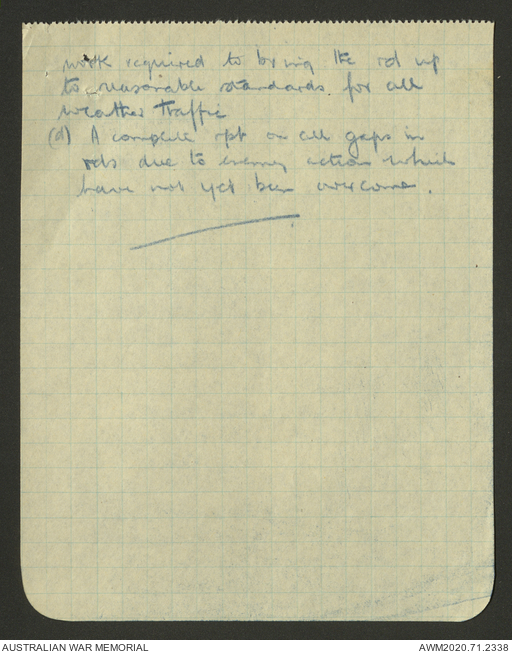 work required to bring the rd up
to reasonable standards for all
weather traffic
(d) A complete rpt on all gaps in
rds due to enemy action which
have not yet been overcome.
AUSTRALIAN WAR MEMORIAL
AWM2020.71.2338